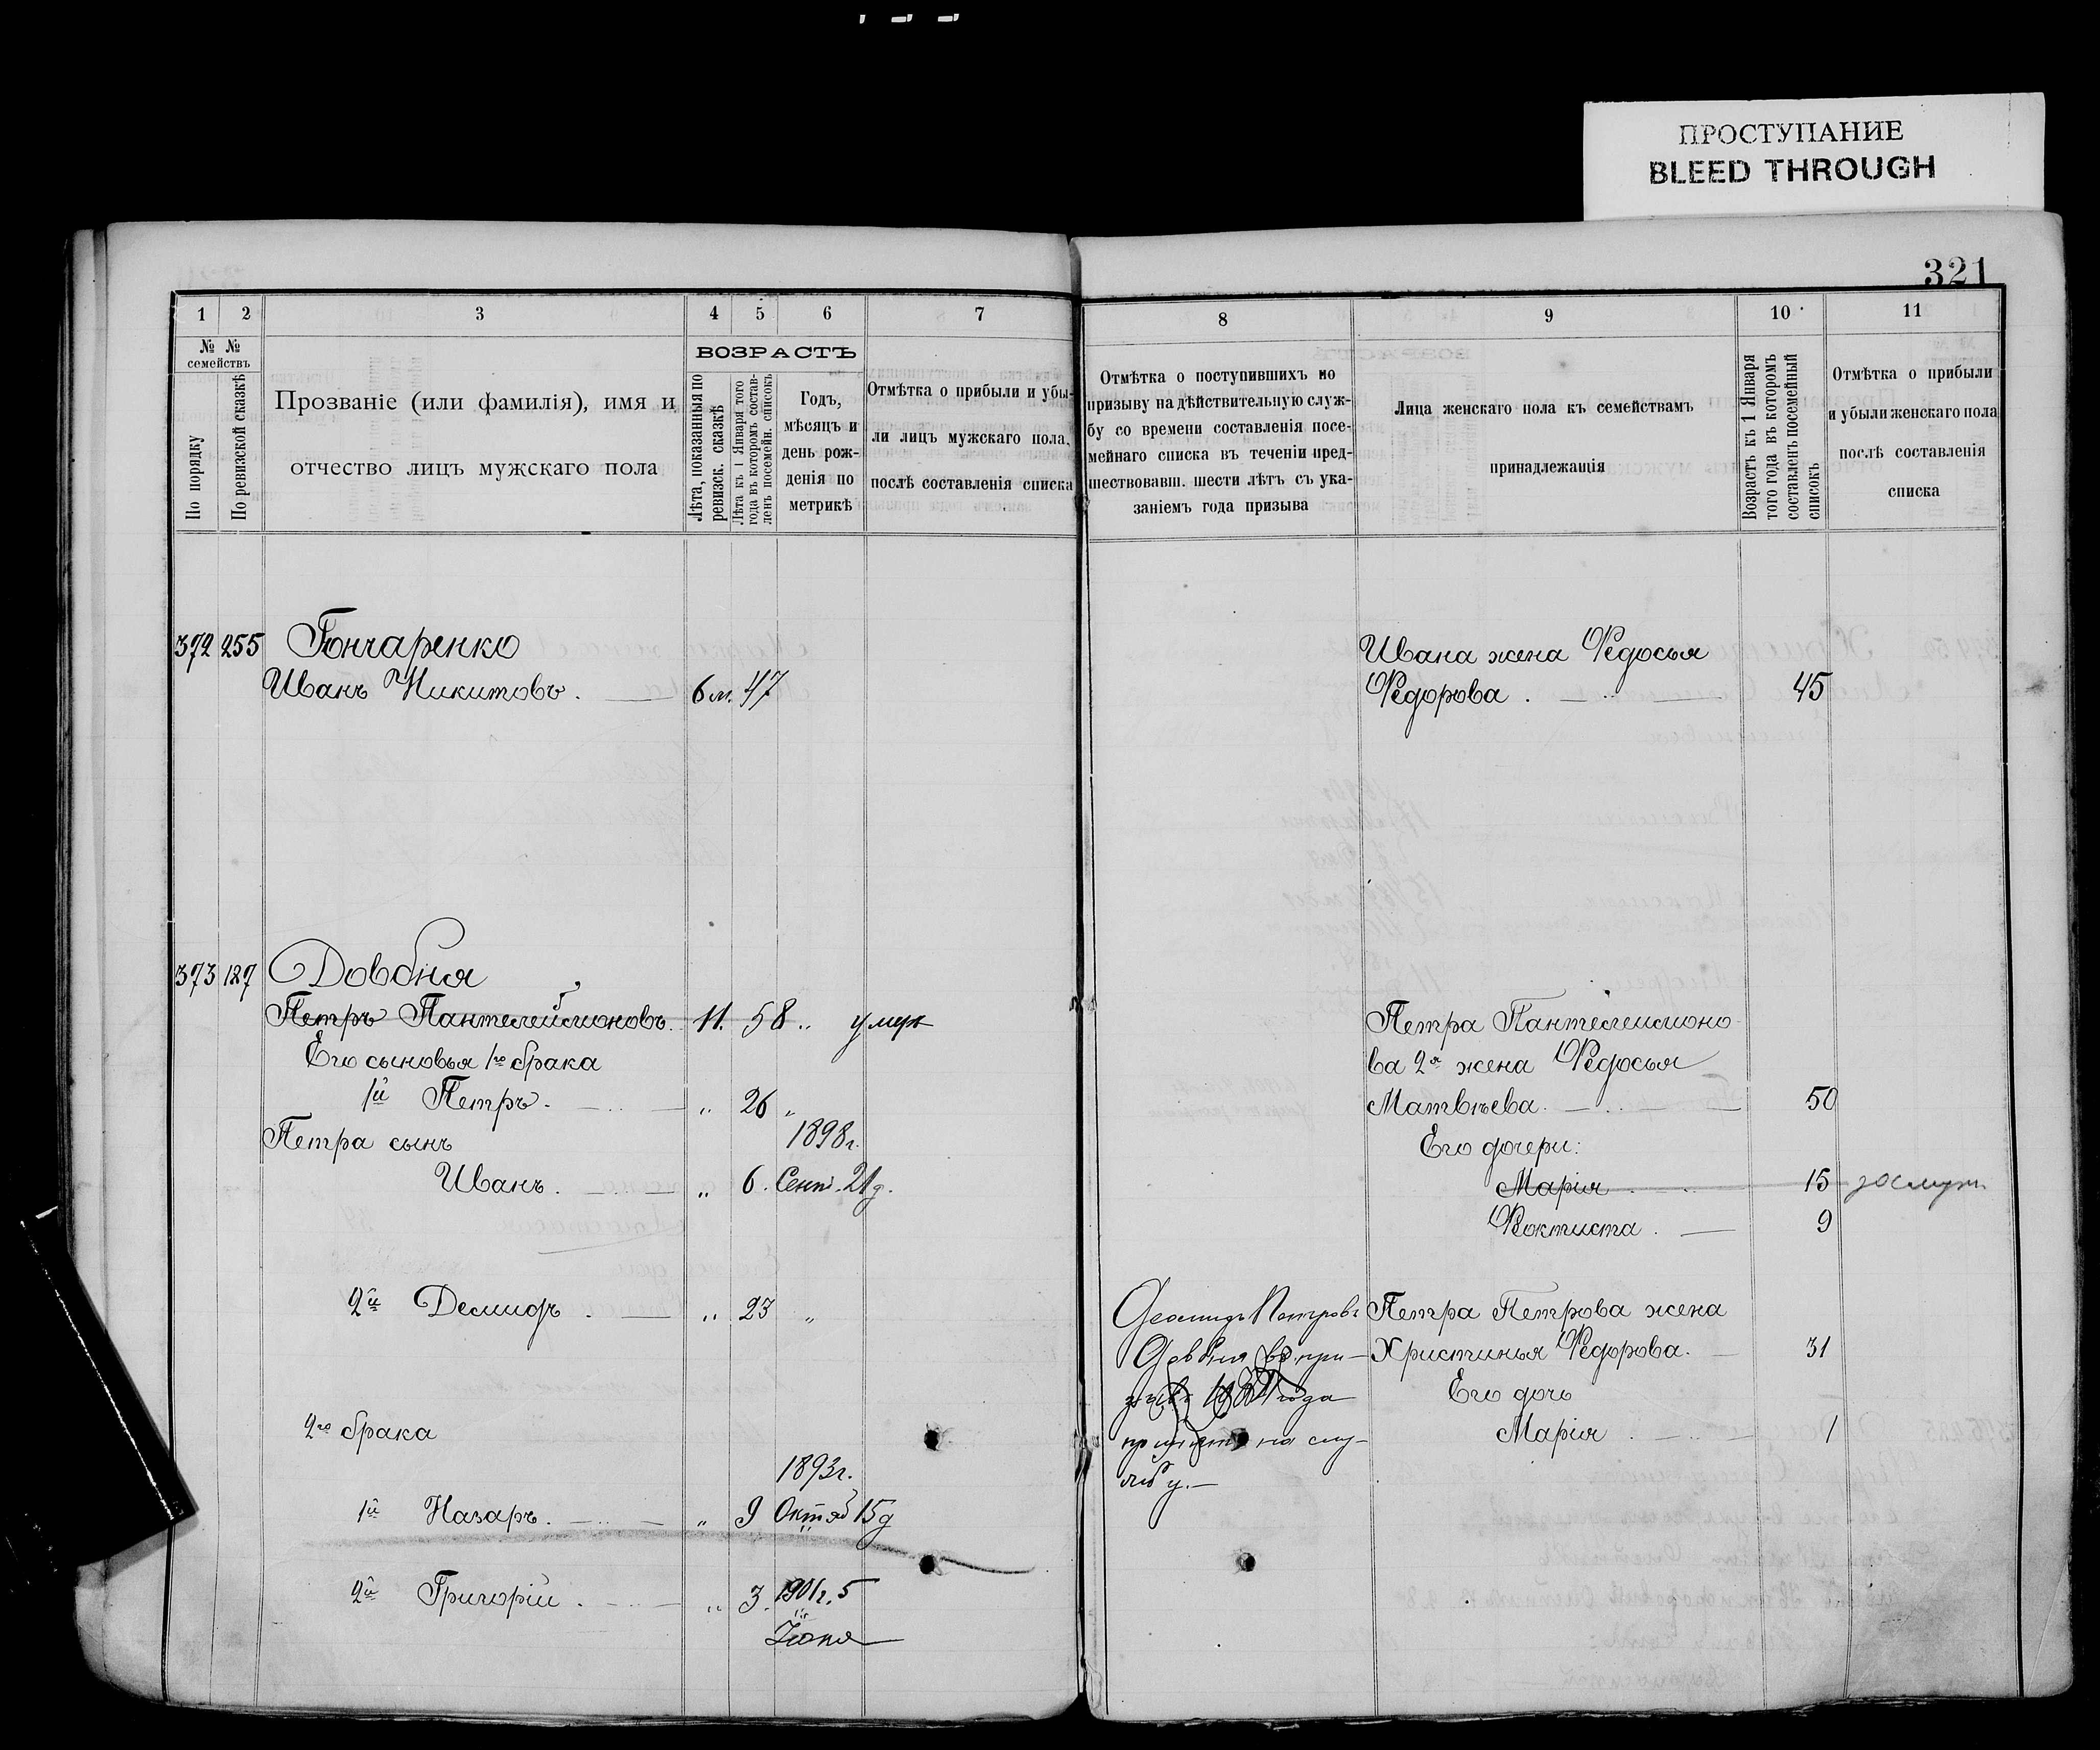 ПРОСТУПАНИЕ
BLEED THROUGH
321
1 2 3 4 5 6 7
№ № семействъ
По порядку
По ревизской сказкѣ
Прозваніе (или фамилія), имя и
отчество лицъ мужскаго пола
ВОЗРАСТЪ
Лѣта, показанныя по
ревизск. сказкѣ
Лѣта къ 1 Января того
года въ которомъ состав-
ленъ посемейн. списокъ
Годъ,
мѣсяцъ и
день рож-
денія по
метрикѣ
Отмѣтка о прибыли и убы-
ли лицъ мужскаго пола,
послѣ составленія списка
372 255 Гончаренко
Иванъ Никитовъ. 6 м. 47
373 127 Довбня
Петръ Пантелеймоновъ. 11. 58 „ умеръ
Его сыновья 1го брака
1й Петръ. „ 26 „
Петра сынъ 1898 г.
Иванъ. „ 6. Сент. 21 д.
2й Демидъ. „ 23 „
2го брака
1893 г.
1й Назаръ. „ 9 Октяб 15 д
2й Григорій. „ 3. 1901 г. 5
Іюня
8 9 10 11
Отмѣтка о поступившихъ по
призыву на дѣйствительную служ-
бу со времени составленія посе-
мейнаго списка въ теченіи пред-
шествовавш. шести лѣтъ съ ука-
заніемъ года призыва
Лица женскаго пола къ семействамъ
принадлежащія
Возрастъ къ 1 Января
того года въ которомъ
составленъ посемейный
списокъ
Отмѣтка о прибыли
и убыли женскаго пола
послѣ составленія
списка
Ивана жена Ѳедосья
Ѳедорова. 45
Петра Пантелеимоно-
ва 2я жена Ѳедосья
Матвѣева. 50
Его дочери:
Марія 15 замуж
Ѳеоктиста. 9
Демидъ Петровъ
Довбня въ при-
зывъ года
принятъ на слу-
жбу.
Петра Петрова жена
Христинья Ѳедорова. 31
Его дочь
Марія. 1